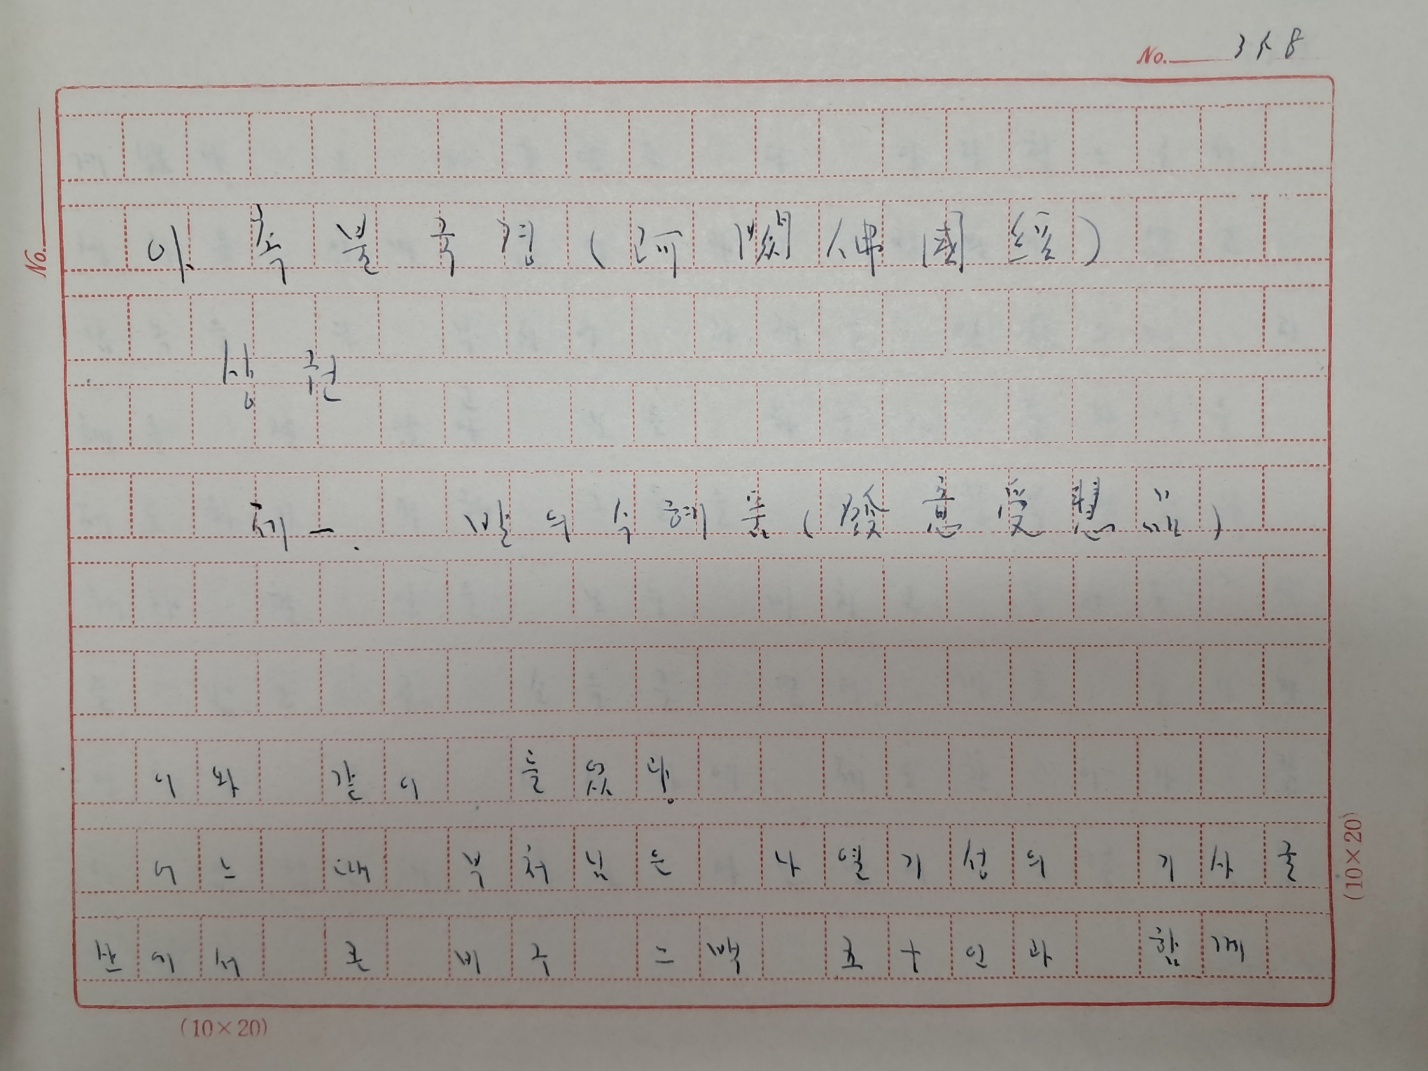 No. 358
No.
아축불국경(阿閦佛國經)
상권
제一. 발의수혜품(發意受慧品)
이와 같이 들었다.
어느 때 부처님은 나열기성의 기사굴
산에서 큰 비구 느백 五十인과 함께
(10×20)
(10×20)